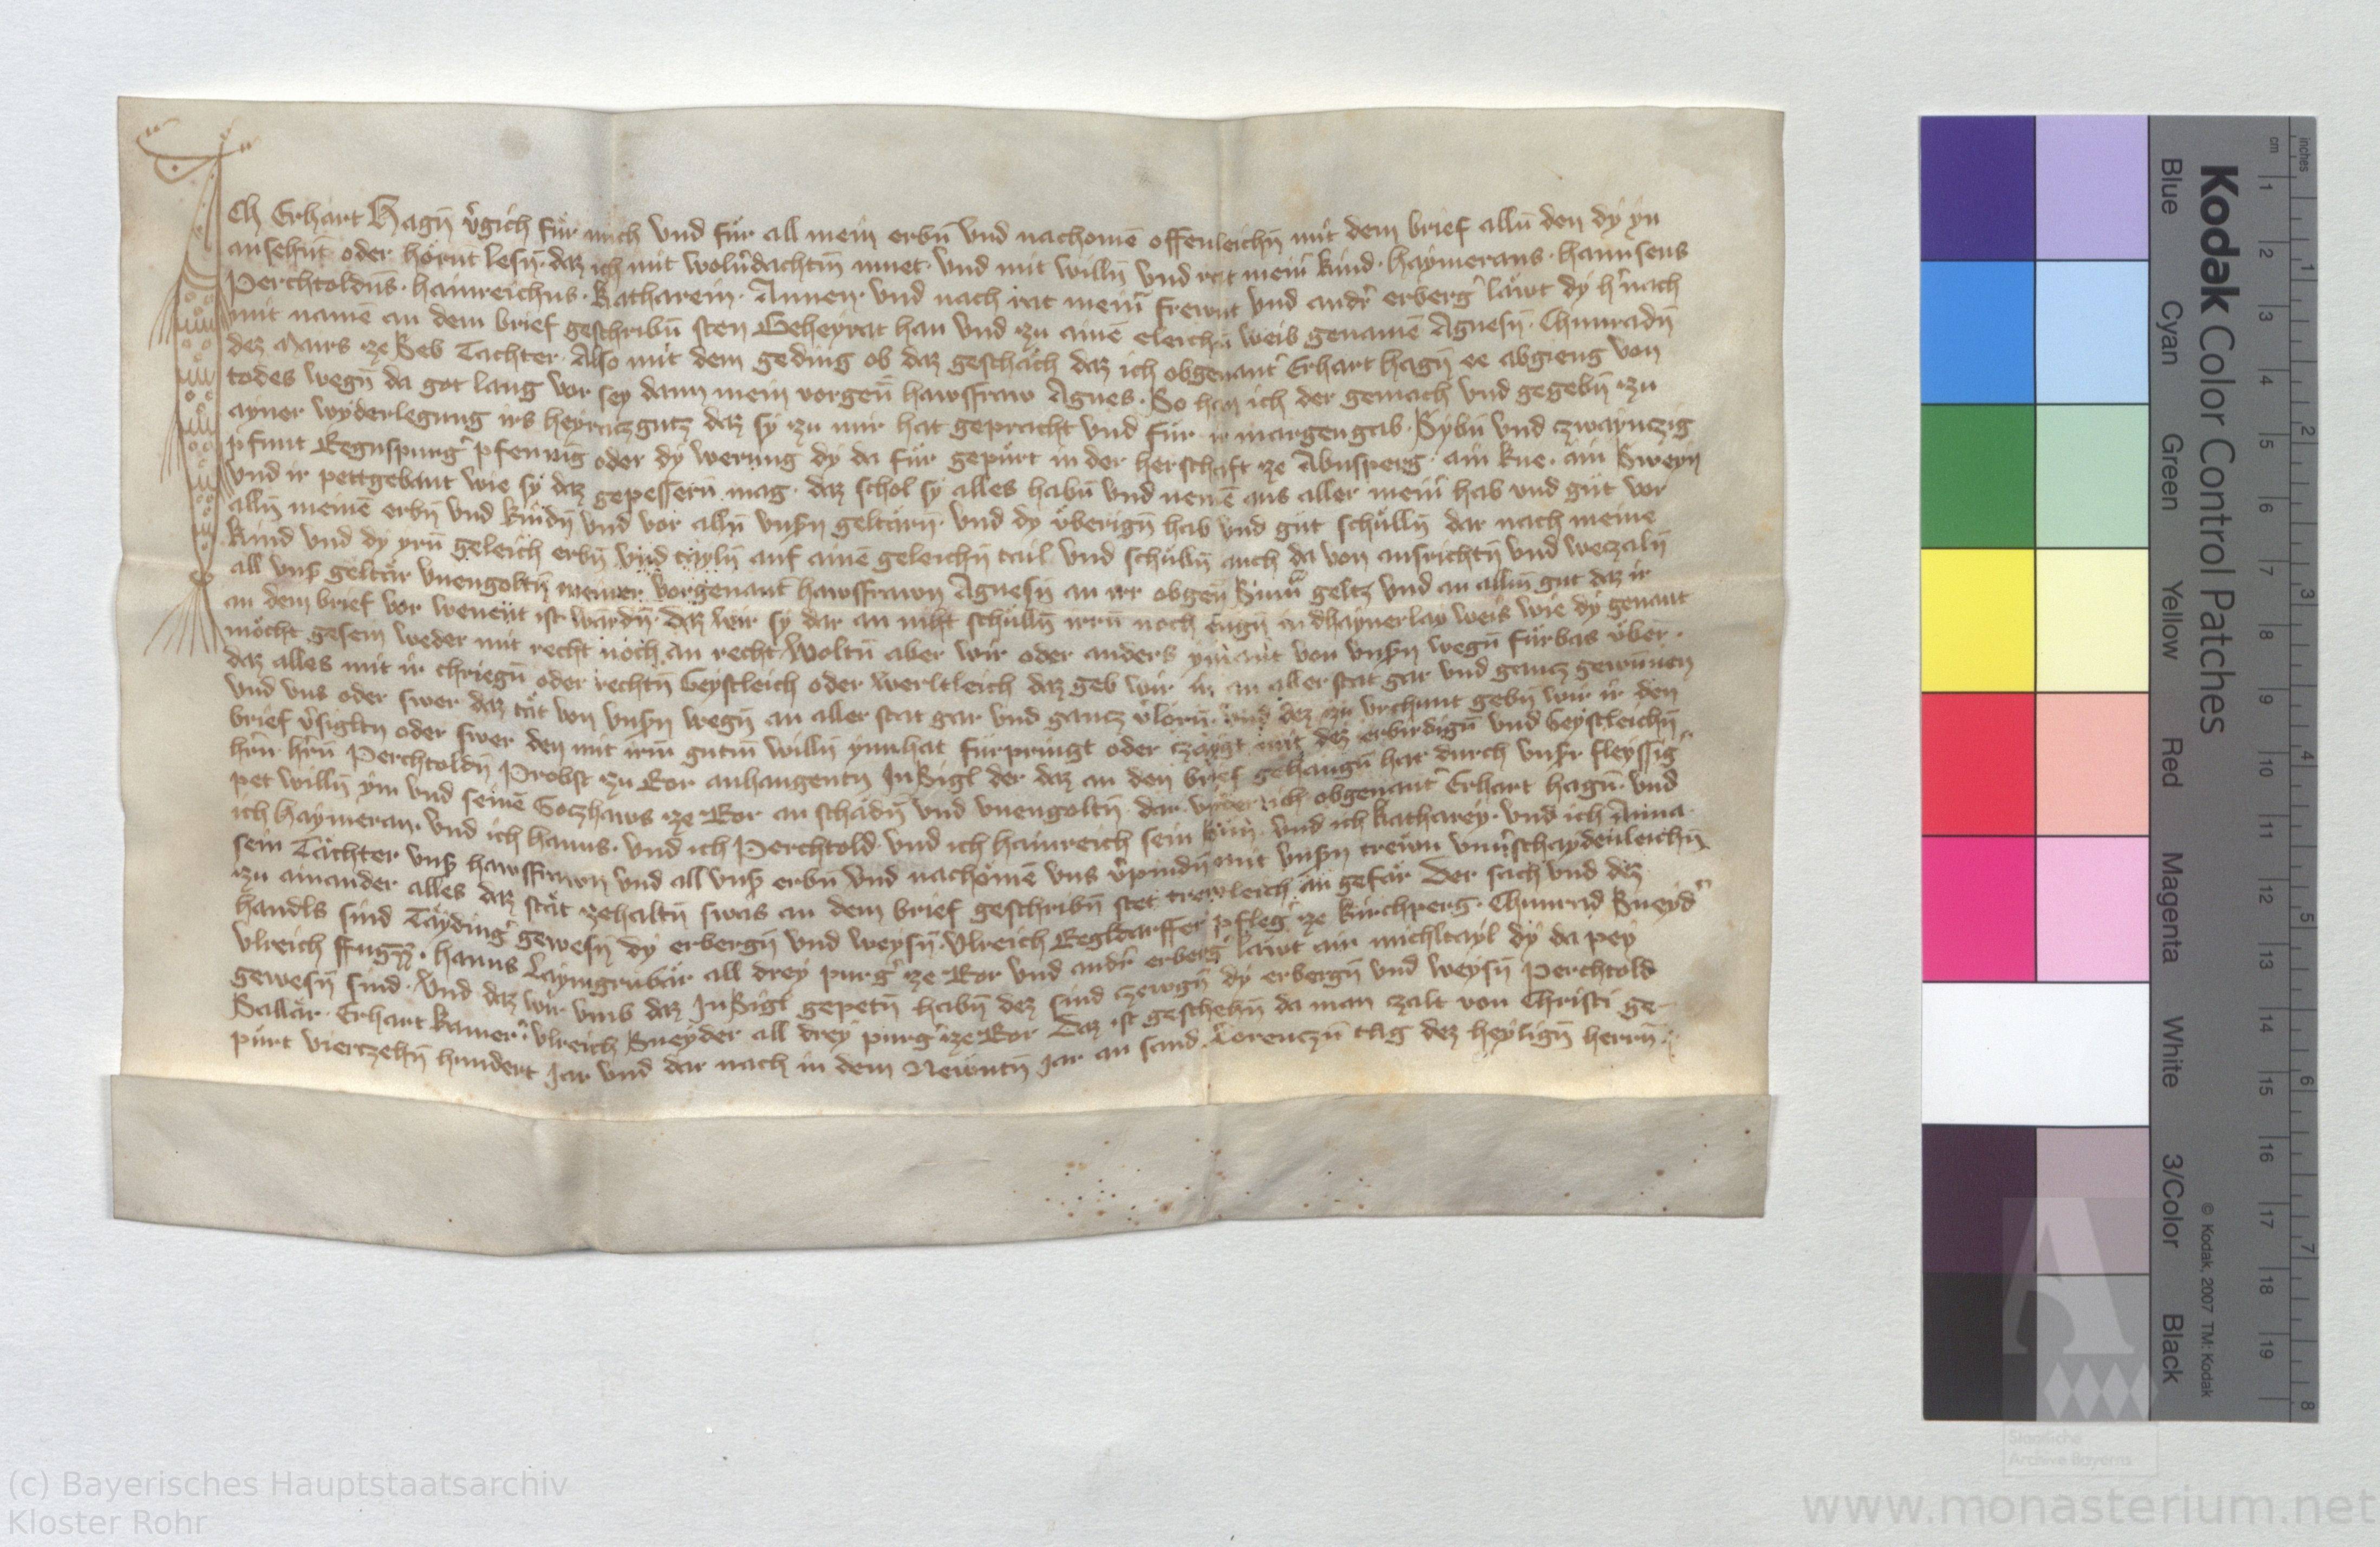 Ich Erhart Hagn̄ v̂gich für mich vnd für all mein erbn̄ vnd nachomē offenleichn̄ mit dem brief alln̄ den dy yn
ansehn̄t oder hörn̄t lesn̄ · daz ich mit woln̂dachtm̄ muet · vnd mit willn̄ vnd rat mein̂ kind · Haymerans · Hannsens
Perchtoldn̄s · Hainreichns · Katharein · Annen · vnd nach rat mein̂ frewnt vnd andr̂ erberĝ läwt dy ĥnach
mit namē an dem brief geschribn̄ sten Geheyrat han vnd zu ainē eleichn̄ weib genamē Agnesn̄ · Chunradn̄
dez Mairs ze Seb Tachter · Also mit dem geding ob daz geschäch daz ich obgenant̂ Erhart Hagn̄ ee abgieng von
todes wegn̄ da got lang vor sey dann mein vorgen̄ hawsfraw Agnes · So han ich der gemach vnd gegebn̄ zu
ayner wyderlegung irs heyratzgutz daz sy zu mir hat gepracht vnd für ir margengab · Sybn̄ vnd czwaynczig
pfunt Regnspurĝ pfennig oder dy werung dy da für gepürt in der herschaft ze Abnsperg · ain kue · ain Sweyn
vnd ir pettgebant wie sy daz gepessern̄ mag · daz schol sy alles habn̄ vnd nemē aus aller mein̂ hab vnd gut vor
alln̄ meinē erbn̄ vnd kindn̄ vnd vor alln̄ vnsn̄ geltärn̄ · vnd dy v̈berign̄ hab vnd gut schülln̄ dar nach meine
kind vnd dy yrn̄ geleich erbn̄ vnd tayln̄ auf ainē geleichn̄ tail vnd schülln̄ auch da von ausrichtn̄ vnd weczaln̄
all vnŝ geltär vnengoltn̄ meiner vorgenant̄ hawsfrawn Agnesn̄ an irr obgen̄ Sum̄ geltz vnd an allm̄ gut daz ir
an dem brief vor wenent ist wardn̄ · daz wir sy dar an niht schülln̄ irrn̄ noch engn̄ in dhaynerlay weis wie dy genant
möcht gesein weder mit recht noch an recht · Woltn̄ aber wir oder anders ymant von vnsn̄ wegn̄ fürbas v̈ber
daz alles mit ir chriegn̄ oder rechtn̄ Geystleich oder werltleich daz geb wir ir an aller stat gar vnd gancz gewunnen
vnd vns oder swer daz tät von vnsn̄ wegn̄ an aller stat gar vnd gancz v̂lorn̄ · vnd dez zu vrchunt gebn̄ wir ir den
brief v̂sigltn oder swer den mit irm gutm̄ willn̄ ynnhat fürpringt oder czaygt mit dez erbirdign̄ vnd Geystleichn̄
hr̄n hr̄n Perchtoldn̄ Probst zu Ror anhangentn̄ InSigl der daz an den brief gehangn̄ hat durch vnsr̂ fleyssig
pet willn̄ ym vnd seinē Goczhaws ze Ror an schadn̄ vnd vnengoltn̄ · dar vnder ich obgenant̂ Erhart Hagn̄ · vnd
ich Haymeran · vnd ich Hanns · vnd ich Perchtold · vnd ich Hainreich sein sün · vnd ich Katharey · vnd ich Anna
sein Tächter vnŝ hawsfrawn vnd all vnŝ erbn̄ vnd nachömē vns v̂pindn̄ mit vnsn̄ trewn vnu̅schaydenleichn̄
zu ainander alles daz stät zehaltn̄ swas an dem brief geschribn̄ stet trewleich an gefär Der sach vnd dez
handls sind Taydinĝ gewesn̄ dy erbergn̄ vnd weysn̄ · Vlreich Regldarffer pfleĝ ze kirchperg · Chunrad Sneyd̂
Vlreich · Hanns Laymgrubär all drey purĝ ze Ror vnd andr̂ erberĝ läwt ain michltayl dy da pey
gewesn̄ sind · Vnd daz wir vmb daz InSigl gepetn̄ habn̄ dez sind czewgn̄ dy erbergn̄ vnd weysn̄ Perchtold
Sallär · Erhart kamer̂ · Vlreich Sneyder all drey purĝ ze Ror Daz ist geschehn̄ da man zalt von Christi ge-
pürt vierczehn̄ hundert Jar vnd dar nach in dem Newntn̄ Jar an sand Lorenczn̄ tag dez heylign̄ herrn̄
Kodak Color Control Patches
Blue Cyan Green Yellow Red Magenta White 3/Color Black
© Kodak, 2007 TM: Kodak
cm 1 2 3 4 5 6 7 8 9 10 11 12 13 14 15 16 17 18 19
inches 1 2 3 4 5 6 7 8
Staatliche
Archive Bayerns
(c) Bayerisches Hauptstaatsarchiv
Kloster Rohr
www.monasterium.net